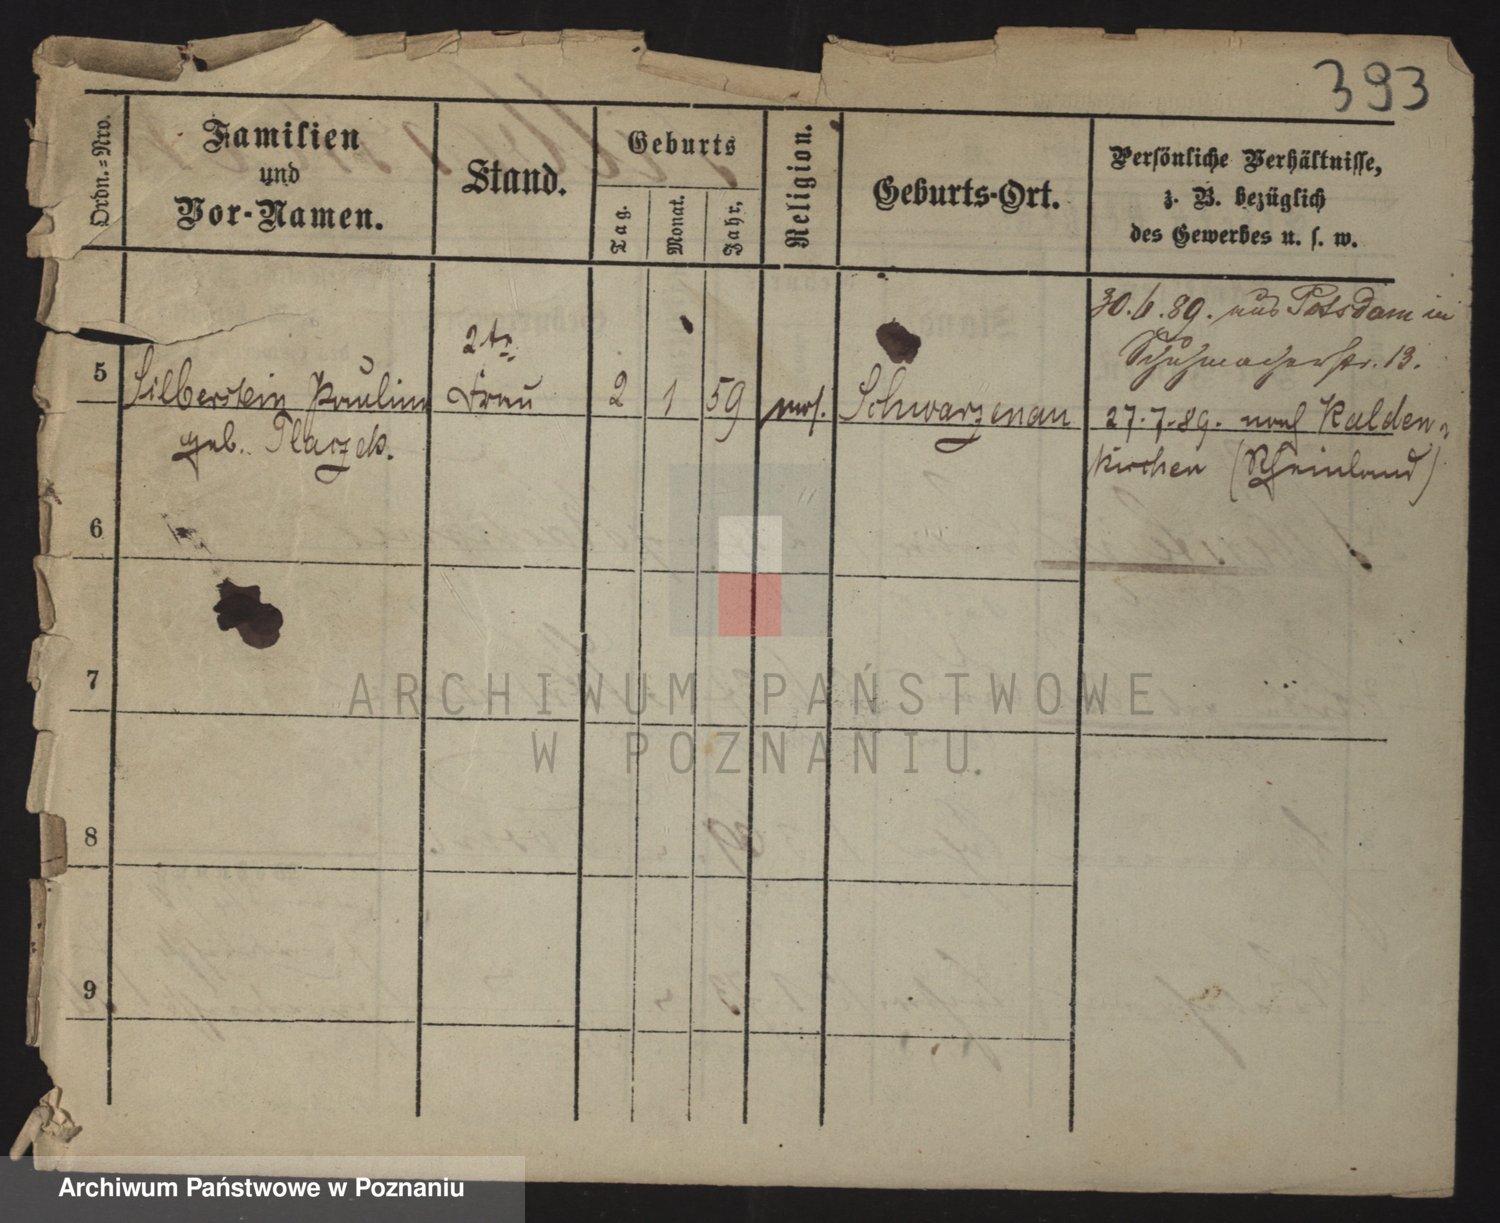 393
Ordn.=Nro.
Familien
und
Vor-Namen.
Stand.
Geburts
Tag.
Monat.
Jahr.
Religion.
Geburts-Ort.
Persönliche Verhältnisse,
z. B. bezüglich
des Gewerbes u. s. w.
30.6.89. aus Potsdam in
Schuhmacherstr. 13.
2te
5 Silberstein Pauline Frau 2 1 59 mos. Schwarzenau 27.7.89. nach Kalden=
geb. Placzek. kirchen (Rheinland)
6
7
8
9
ARCHIWUM PAŃSTWOWE
W POZNANIU.
Archiwum Państwowe w Poznaniu